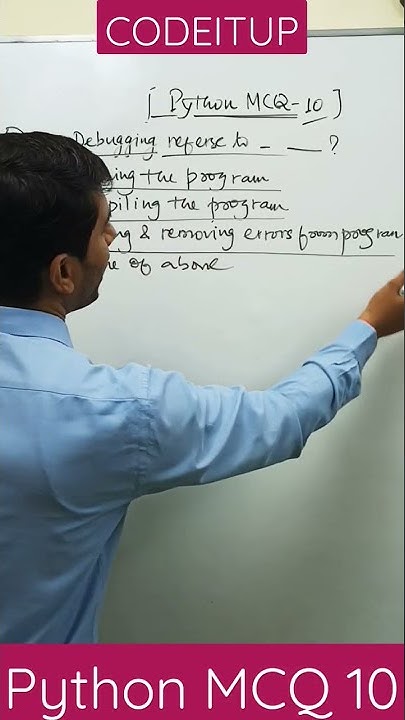 CODEITUP
[ Python MCQ-10 ]
Debugging referse to _ __ ?
the program
the program
& removing errors from program
of above
Python MCQ 10